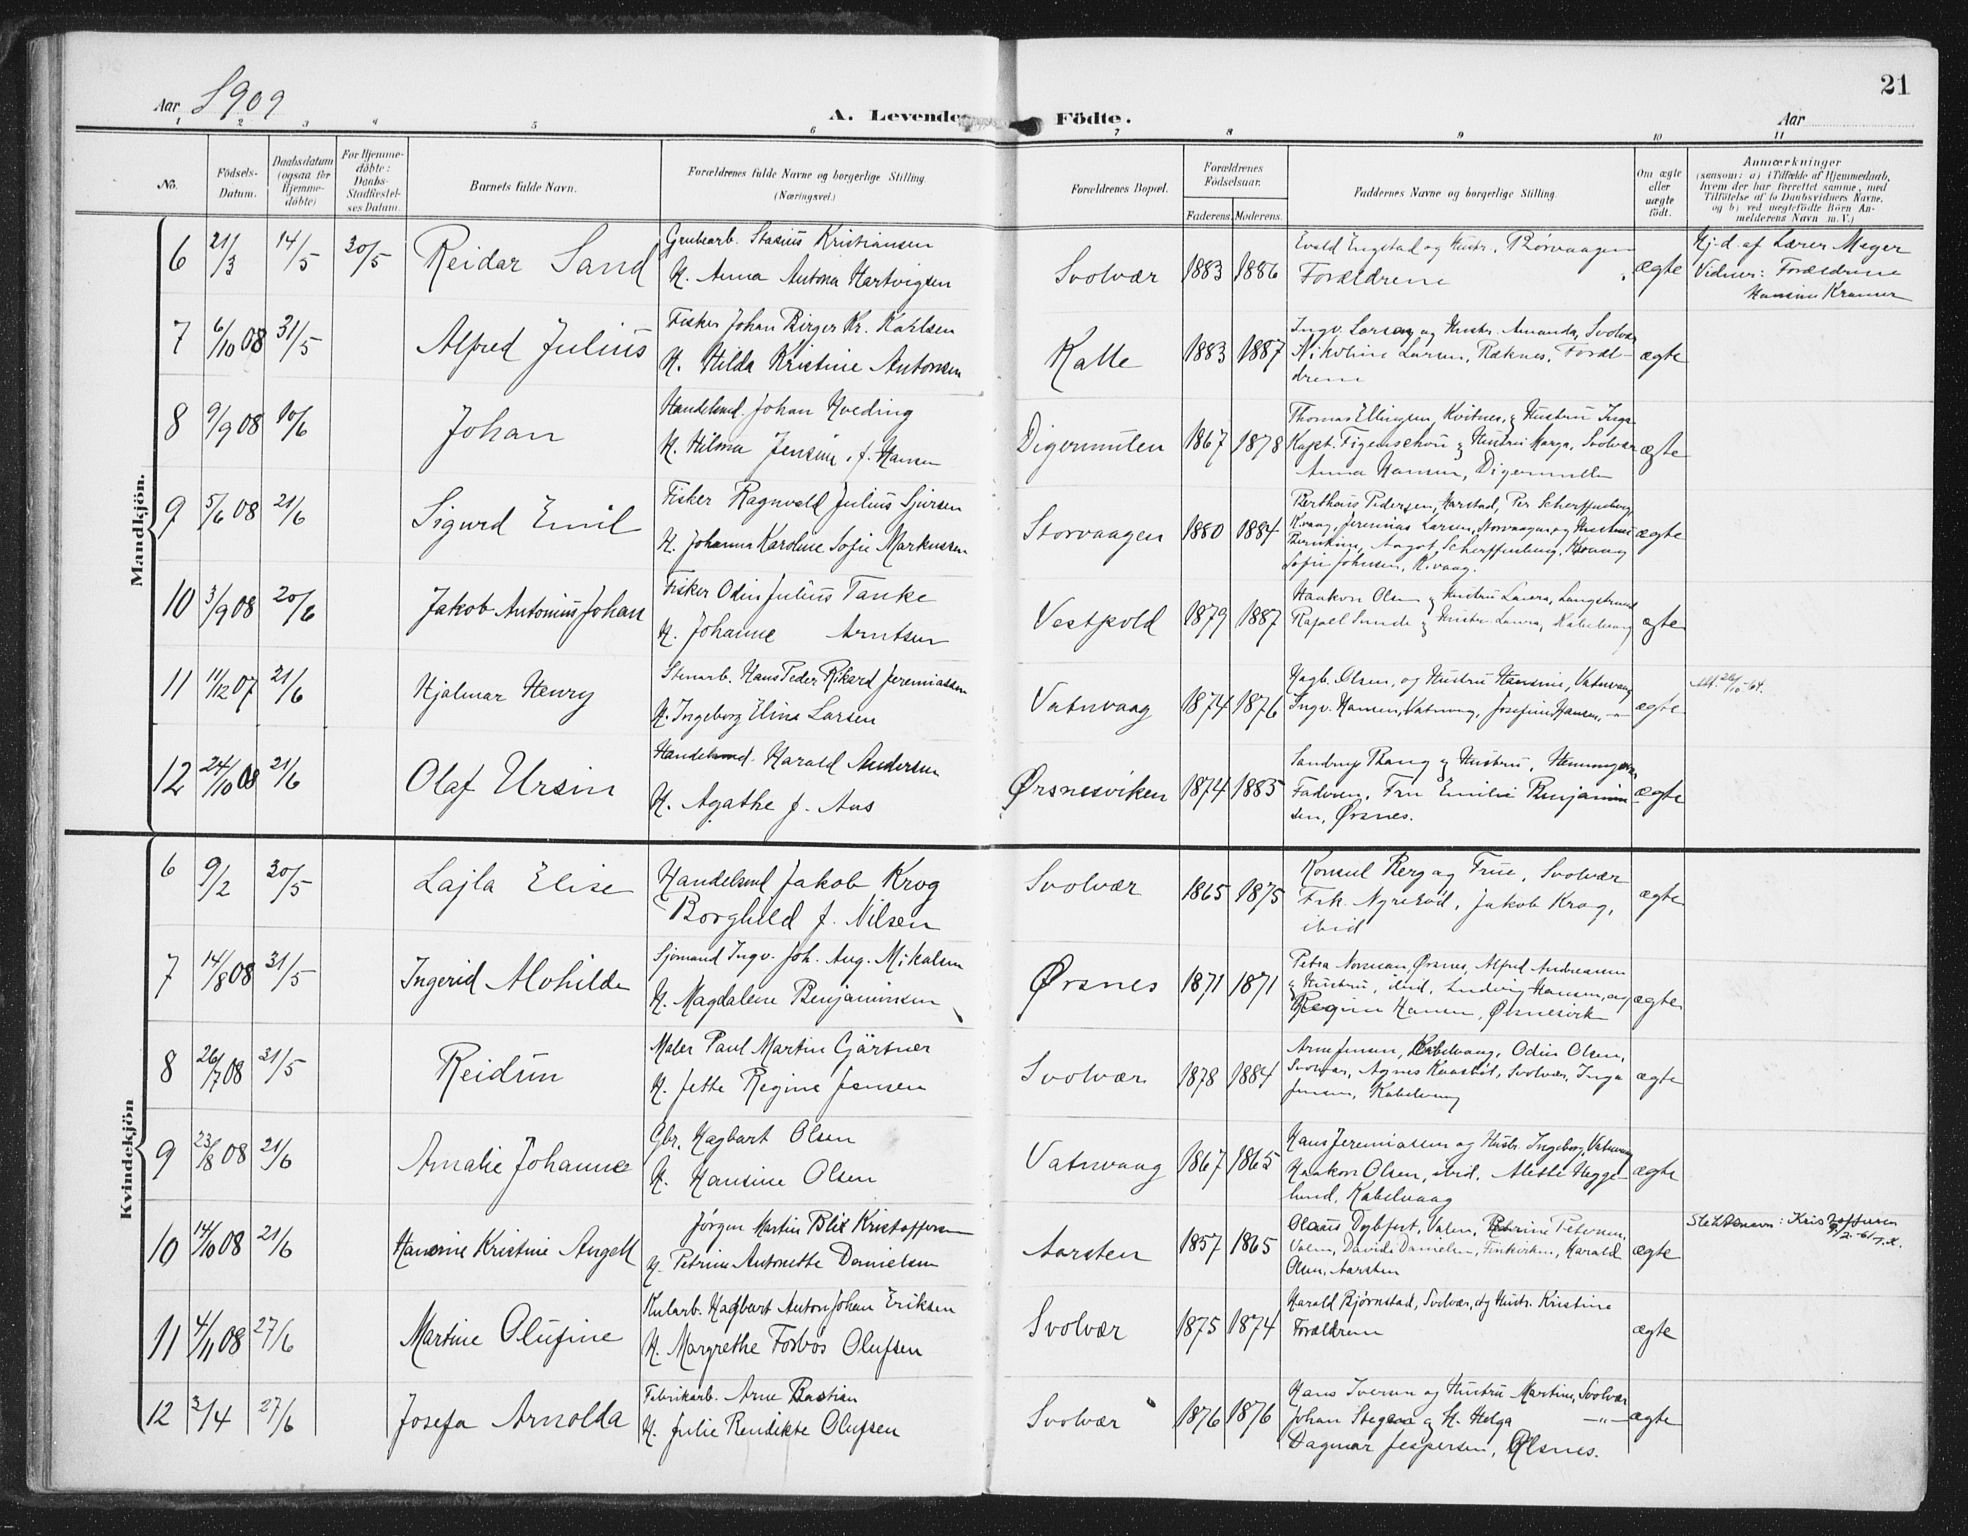 21
Aar 1909
A. Levende Födte.
Aar
1 2 3 4 5 6 7 8 9 10 11
No.
Födsels-Datum.
Daabsdatum (ogsaa for Hjemmedöbte)
For Hjemmedöbte: Daabs-Stadfæstelses Datum.
Barnets fulde Navn.
Forældrenes fulde Navne og borgerlige Stilling. (Næringsvei.)
Forældrenes Bopæl.
Forældrenes Födselsaar.
Faderens. Moderens.
Faddernes Navne og borgerlige Stilling.
Om ægte eller uægte födt.
Anmærkninger
(saasom: a) i Tilfælde af Hjemmedaab,
hvem der har forrettet samme, med
Tilföielse af to Daabsvidners Navne,
og b) ved uægtefödte Börn An-
melderens Navn m. V.)
Mandkjön.
6 21/3 14/5 30/5 Reidar Sand
Grubearb. Stasius Kristiansen
H. Anna Antona Hartvigsen
Svolvær 1883 1886
Evald Engstad og Hustr. Børvaagen
Forældrene
ægte
Hj.d. af Lærer Meyer
Vidner: Forældrene
Hansine Kramer
7 6/10 08 31/5 Alfred Julius
Fisker Johan Birger Kr. Karlsen
H. Hilda Kristine Antonsen
Kalle 1883 1887
Ingv. Larsen og Hustr. Amanda, Svolvær
Nikoline Larsen, Reknes, Foræl-
drene
ægte
8 9/9 08 10/6 Johan
Handelsmd. Johan Hveding
H. Hilma Jensine, f. Hansen
Digermulen 1867 1878
Thomas Ellingsen, Kvitnes, & Hustru Inga
Kapt. Figenschou & Hustru Marga, Svolvær
Anna Hansen, Digermulen
ægte
9 5/6 08 21/6 Sigurd Emil
Fisker Ragnvald Julius Sjursen
H. Johanna Karoline Sofie Markussen
Storvaagen 1880 1884
Bertheus Pedersen, Harstad, Per Scherffenberg
Kvaag, Jeremias Larsen, Storvaagen og Hustru
Bernkine, Aagot Scherffenberg, Kvaag
Sofie Johnsen, K.vaag.
ægte
10 3/9 08 20/6 Jakob Antonius Johan
Fisker Odin Julius Tanke
H. Johanne Arntsen
Vestpold 1879 1887
Haakon Olsen & Hustru Laura, Langstrand
Rafael Sunde & Hustr. Laura, Kabelvaag
ægte
11 11/12 07 21/6 Hjalmar Henry
Stenarb. Hans Peder Rikard Jeremiassen
H. Ingeborg Elina Larsen
Vatnvaag 1874 1876
Hagb. Olsen, og Hustru Hansine, Vatnvaag
Ingv. Hansen, Vatnvaag, Josefine Hansen, -"-
ægte
Att. 26/10-64.
12 24/10 08 21/6 Olaf Ursin
Handelsmd. Harald Andersen
H. Agathe f. Aas
Ørsnesviken 1874 1885
Sandrup Bang & Hustru, Henningsvær
Faderen, Fru Emilie Benjamin-
sen, Ørsnes.
ægte
Kvindekjön
6 9/2 30/5 Lajla Elise
Handelsmd Jakob Krog
Borghild f. Nilsen
Svolvær 1865 1875
Konsul Berg og Frue, Svolvær
Frk. Nyresöd, Jakob Krog,
ibid
ægte
7 14/8 08 31/5 Ingerid Alohilde
Sjømand Ingv. Joh. Aug. Mikalsen
H. Magdalene Benjaminsen
Ørsnes 1871 1871
Petra Norman, Ørsnes, Alfred Andreassen
& Hustru, ibid, Ludvig Hansen, og
Regine Hansen, Ørsnesvik
ægte
8 26/7 08 31/5 Reidun
Maler Paul Martin Gärtner
H. Jette Regine Jensen
Svolvær 1878 1884
Arne Jensen, Kabelvaag, Odin Olsen,
Svolvær, Agnes Kaasböl, Svolvær, Inga
Jensen, Kabelvaag
ægte
9 23/8 08 21/6 Amalie Johanne
Gbr. Hagbart Olsen
H. Hansine Olsen
Vatnvaag 1867 1865
Hans Jeremiassen og Hustr. Ingeborg, Vatnvaag
Haakon Olsen, ibid. Alette Hegge-
lund, Kabelvaag
ægte
10 14/10 08 21/6 Hansine Kristine Angell
Jørgen Martin Blix Kristoffersen
H. Petrine Antonette Danielsen
Aarsten 1857 1865
Olaus Dybfest, Valen, Petrine Petersen,
Valen, David Danielsen, Finkviken, Harald
Olsen, Aarsten
ægte
Slektsnavn: Kristoffersen
9/2-61
11 4/11 08 27/6 Martine Olufine
Kularb. Hagbart Anton Johan Eriksen
H. Margrethe Forbos Olufsen
Svolvær 1875 1874
Harald Bjørnstad, Svolvær, og Hustr. Kristine
Forældrene
ægte
12 2/4 27/6 Josefa Arnolda
Fabrikarb. Arne Bastian
H. Julie Bendikte Olufsen
Svolvær 1876 1876
Hans Iversen og Hustru Martine, Svolvær
Johan Stegen & H. Helga -"-
Dagmar Jespersen, Ølsnes.
ægte